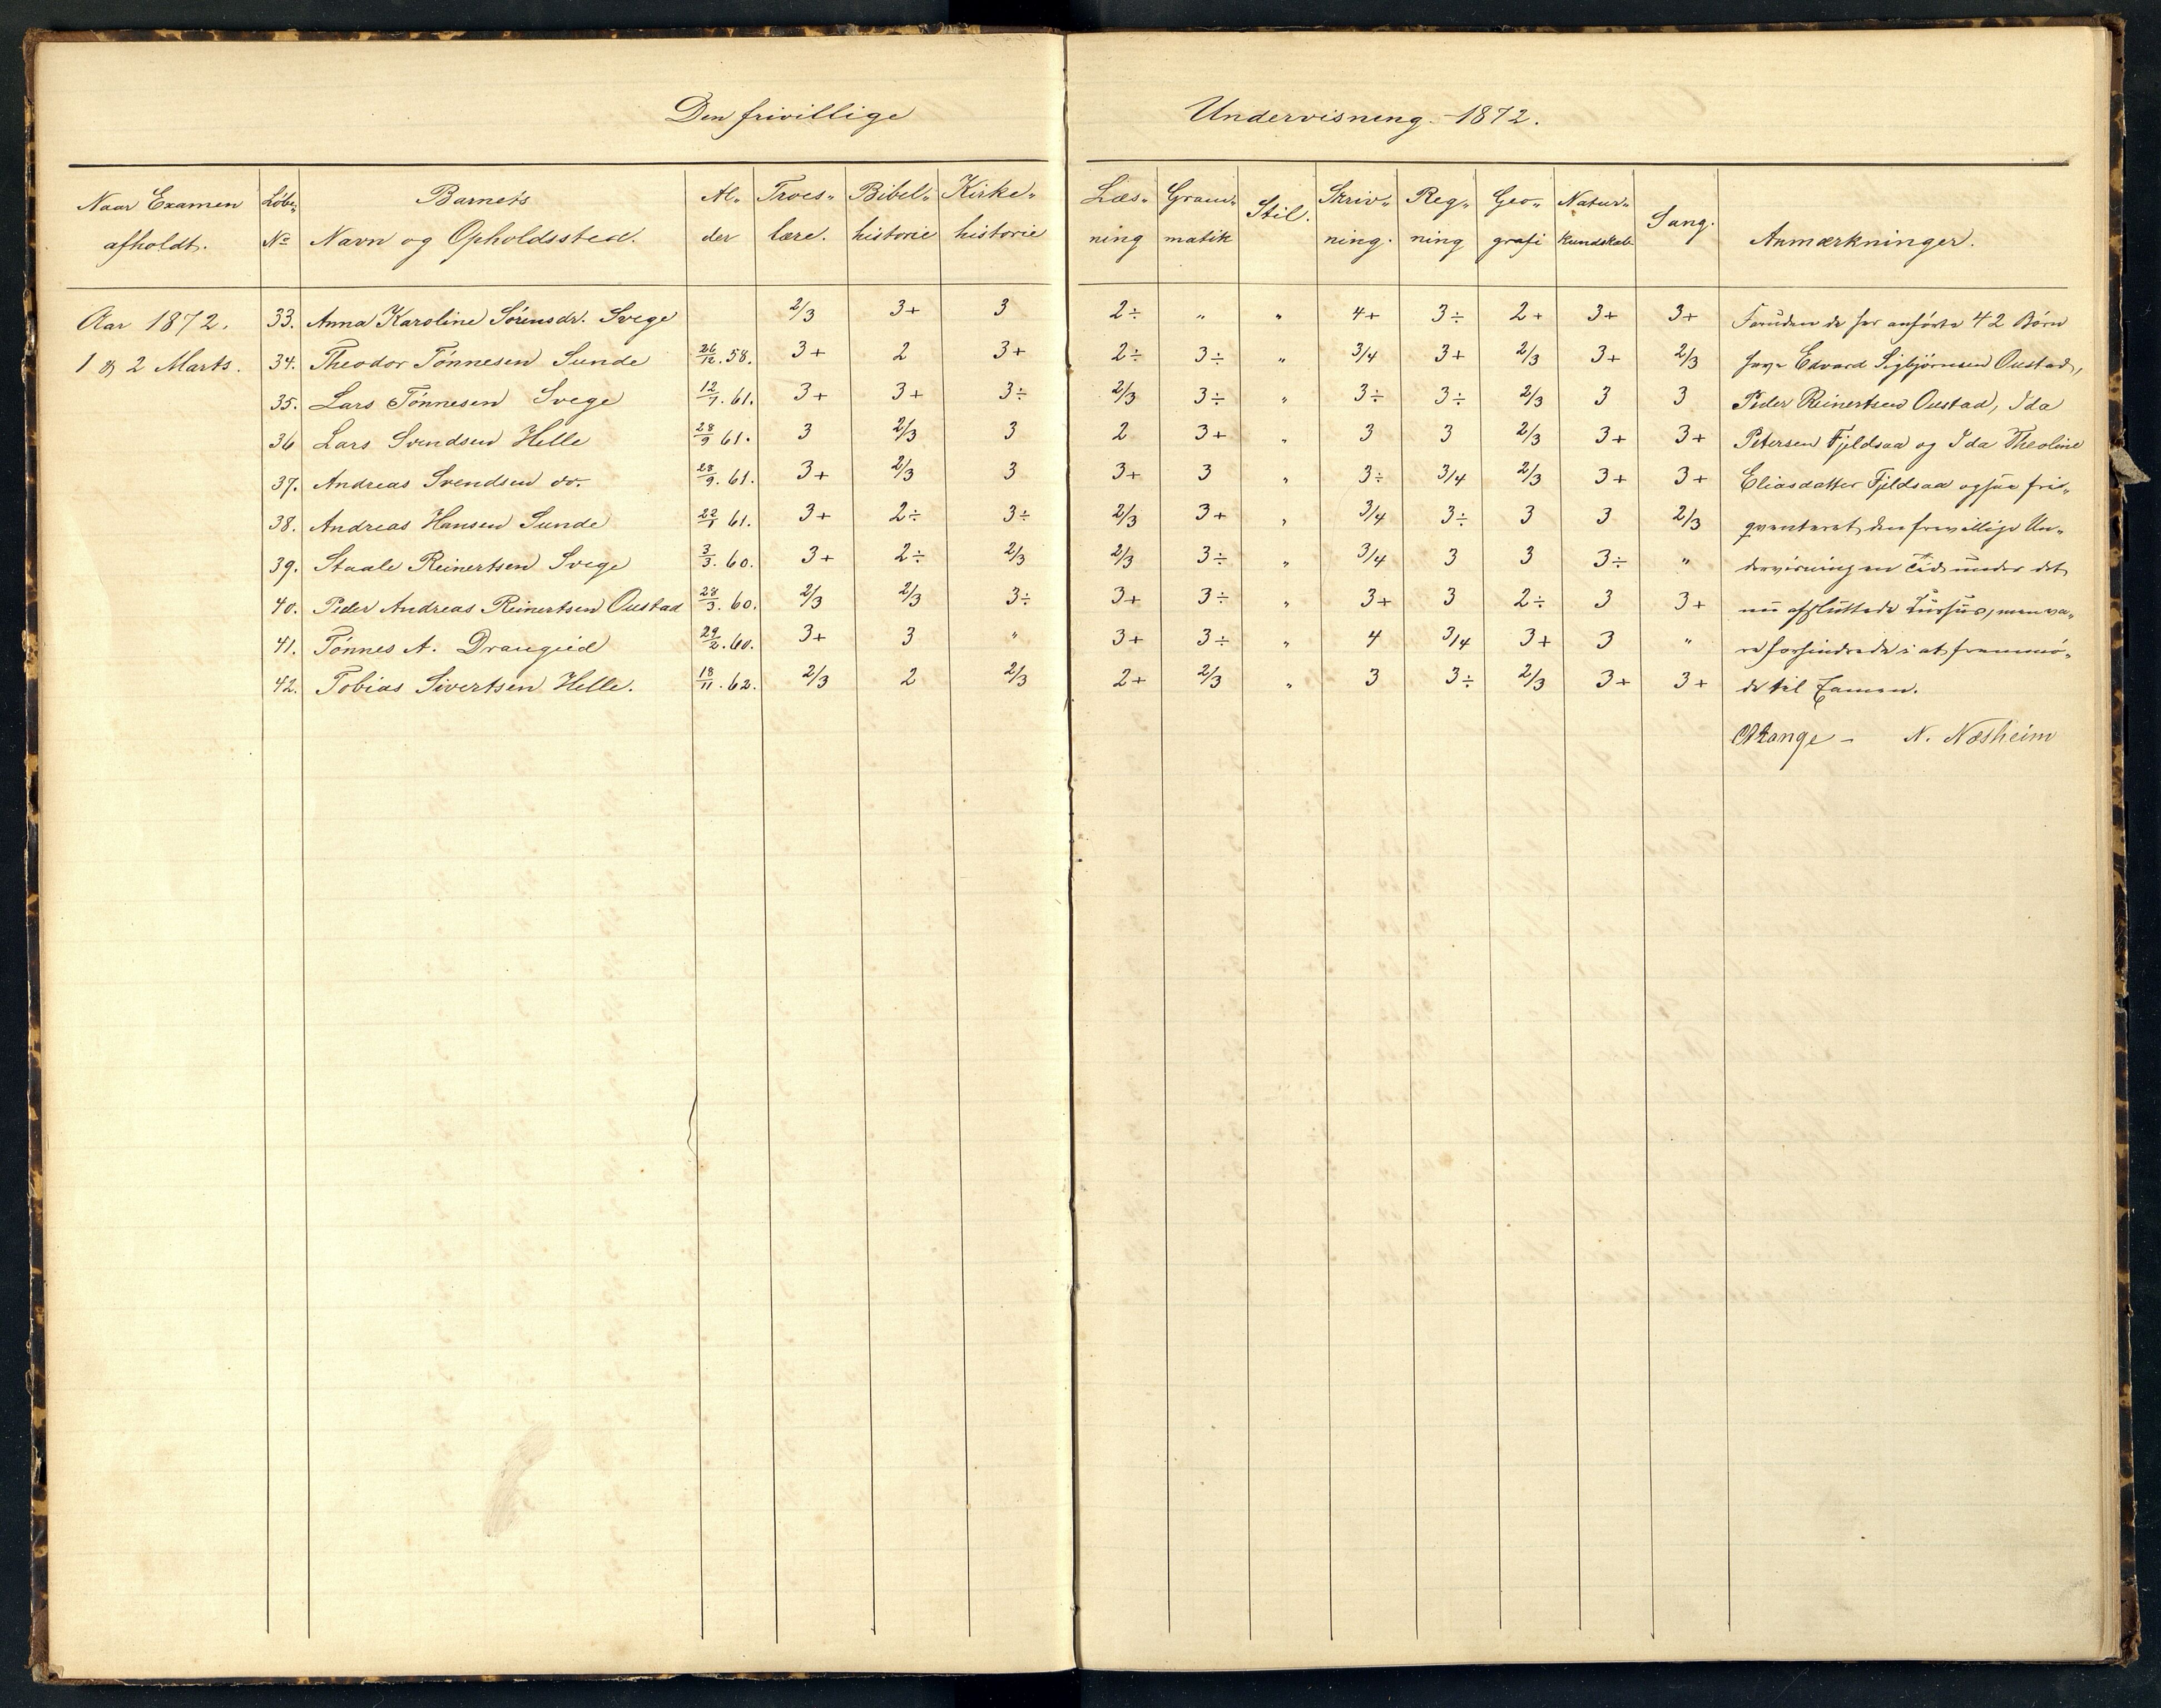 Den frivillige Undervisning 1872.
Naar Examen afholdt. Løbe„ No Barnets Navn og Opholdssted. Al„ der Troes„ lære. Bibel„ historie Kirke„ historie Læs„ ning Gram„ matik Stil. Skriv„ ning. Reg„ ning Geo„ grafi Natur„ kundskab Sang. Anmærkninger.
Aar 1872. 33. Anna Karoline Sørensdr. Svege 2/3 3+ 3 2÷ „ „ 4+ 3÷ 2+ 3+ 3+ Foruden de her anførte 42 Børn
1 og 2 Marts. 34. Theodor Tønnesen Sunde 26/12.58. 3+ 2 3+ 2÷ 3÷ „ 3/4 3+ 2/3 3+ 2/3 have Edvard Sigbjørnsen Oustad,
35. Lars Tønnesen Svege 12/7.61. 3+ 3+ 3÷ 2/3 3÷ „ 3÷ 3÷ 2/3 3 3 Peder Reinertsen Oustad, Ida
36 Lars Svendsen Helle 28/9 61. 3 2/3 3 2 3+ „ 3 3 2/3 3+ 3+ Petersen Fjeldsaa og Ida Theoline
37. Andreas Svendsen do. 28/9.61. 3+ 2/3 3 3+ 3 „ 3÷ 3/4 2/3 3+ 3+ Eliasdatter Fjeldsaa ogsaa fre„
38. Andreas Hansen Sunde 22/1 61. 3+ 2÷ 3÷ 2/3 3+ „ 3/4 3÷ 3 3 2/3 qventeret den frivillige Un„
39. Staale Reinertsen Svege 3/3.60. 3+ 2÷ 2/3 2/3 3÷ „ 3/4 3 3 3÷ „ dervisning en Tid under det
40. Peder Andreas Reinertsen Oustad 28/3.60. 2/3 2/3 3÷ 3+ 3÷ „ 3+ 3 2÷ 3 3+ nu afsluttede Kursus, men va„
41. Tønnes A. Draugeid 29/2.60. 3+ 3 „ 3+ 3÷ „ 4 3/4 3+ 3 „ re forhindrede i at fremmø„
42. Tobias Sivertsen Helle. 18/11.62. 2/3 2 2/3 2+ 2/3 „ 3 3÷ 2/3 3+ 3+ de til Examen.
N. Næsheim